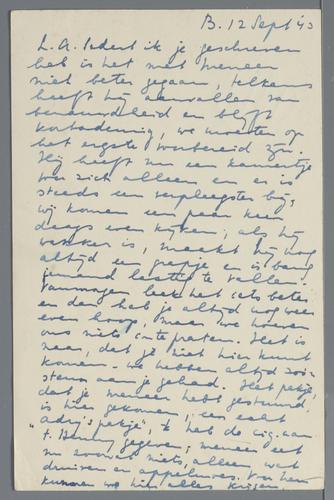 B. 12 Sept '43
L. A. Sedert ik je geschreven
heb is het met meneer
niet beter gegaan, telkens
heeft hij aanvallen van
benauwdheid en blijft
kortademig, we moeten op
het ergste voorbereid zijn.
Hij heeft nu een kamertje
voor zich alleen en er is
steeds een verpleegster bij,
wij komen een paar keer
daags even kijken, als hij
wakker is, maakt hij nog
altijd een grapje en is bang
iemand lastig te vallen.
Vanmorgen leek het iets beter
en dan heb je altijd nog weer
even hoop, maar we hoeven
ons niets in te praten. Het is
naar, dat je niet hier kunt
komen. We hebben altijd zoo'n
steun aan je gehad. Het pakje,
dat je meneer hebt gestuurd
is hier gekomen, een echt
"Adry's pakje", ik heb de cig. aan
t. Benny gegeven, meneer eet
nu zoowat niets, alleen wat
druiven en appelmoes. Voor hem
kunnen we hier alles krijgen